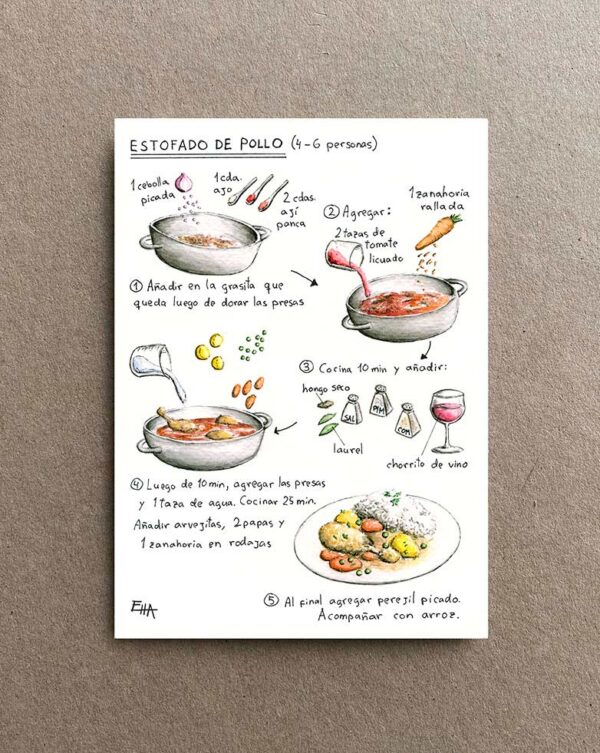 ESTOFADO DE POLLO (4-6 personas)
1 cebolla
picada
1 cda.
ajo
2 cdas.
ají
panca
① Añadir en la grasita que
queda luego de dorar las presas
② Agregar:
2 tazas de
tomate
licuado
1 zanahoria
rallada
③ Cocina 10 min y añadir:
hongo seco
SAL
PIM
COM
laurel
chorrito de vino
④ Luego de 10 min, agregar las presas
y 1 taza de agua. Cocinar 25 min.
Añadir arvejitas, 2 papas y
1 zanahoria en rodajas
⑤ Al final agregar perejil picado.
Acompañar con arroz.